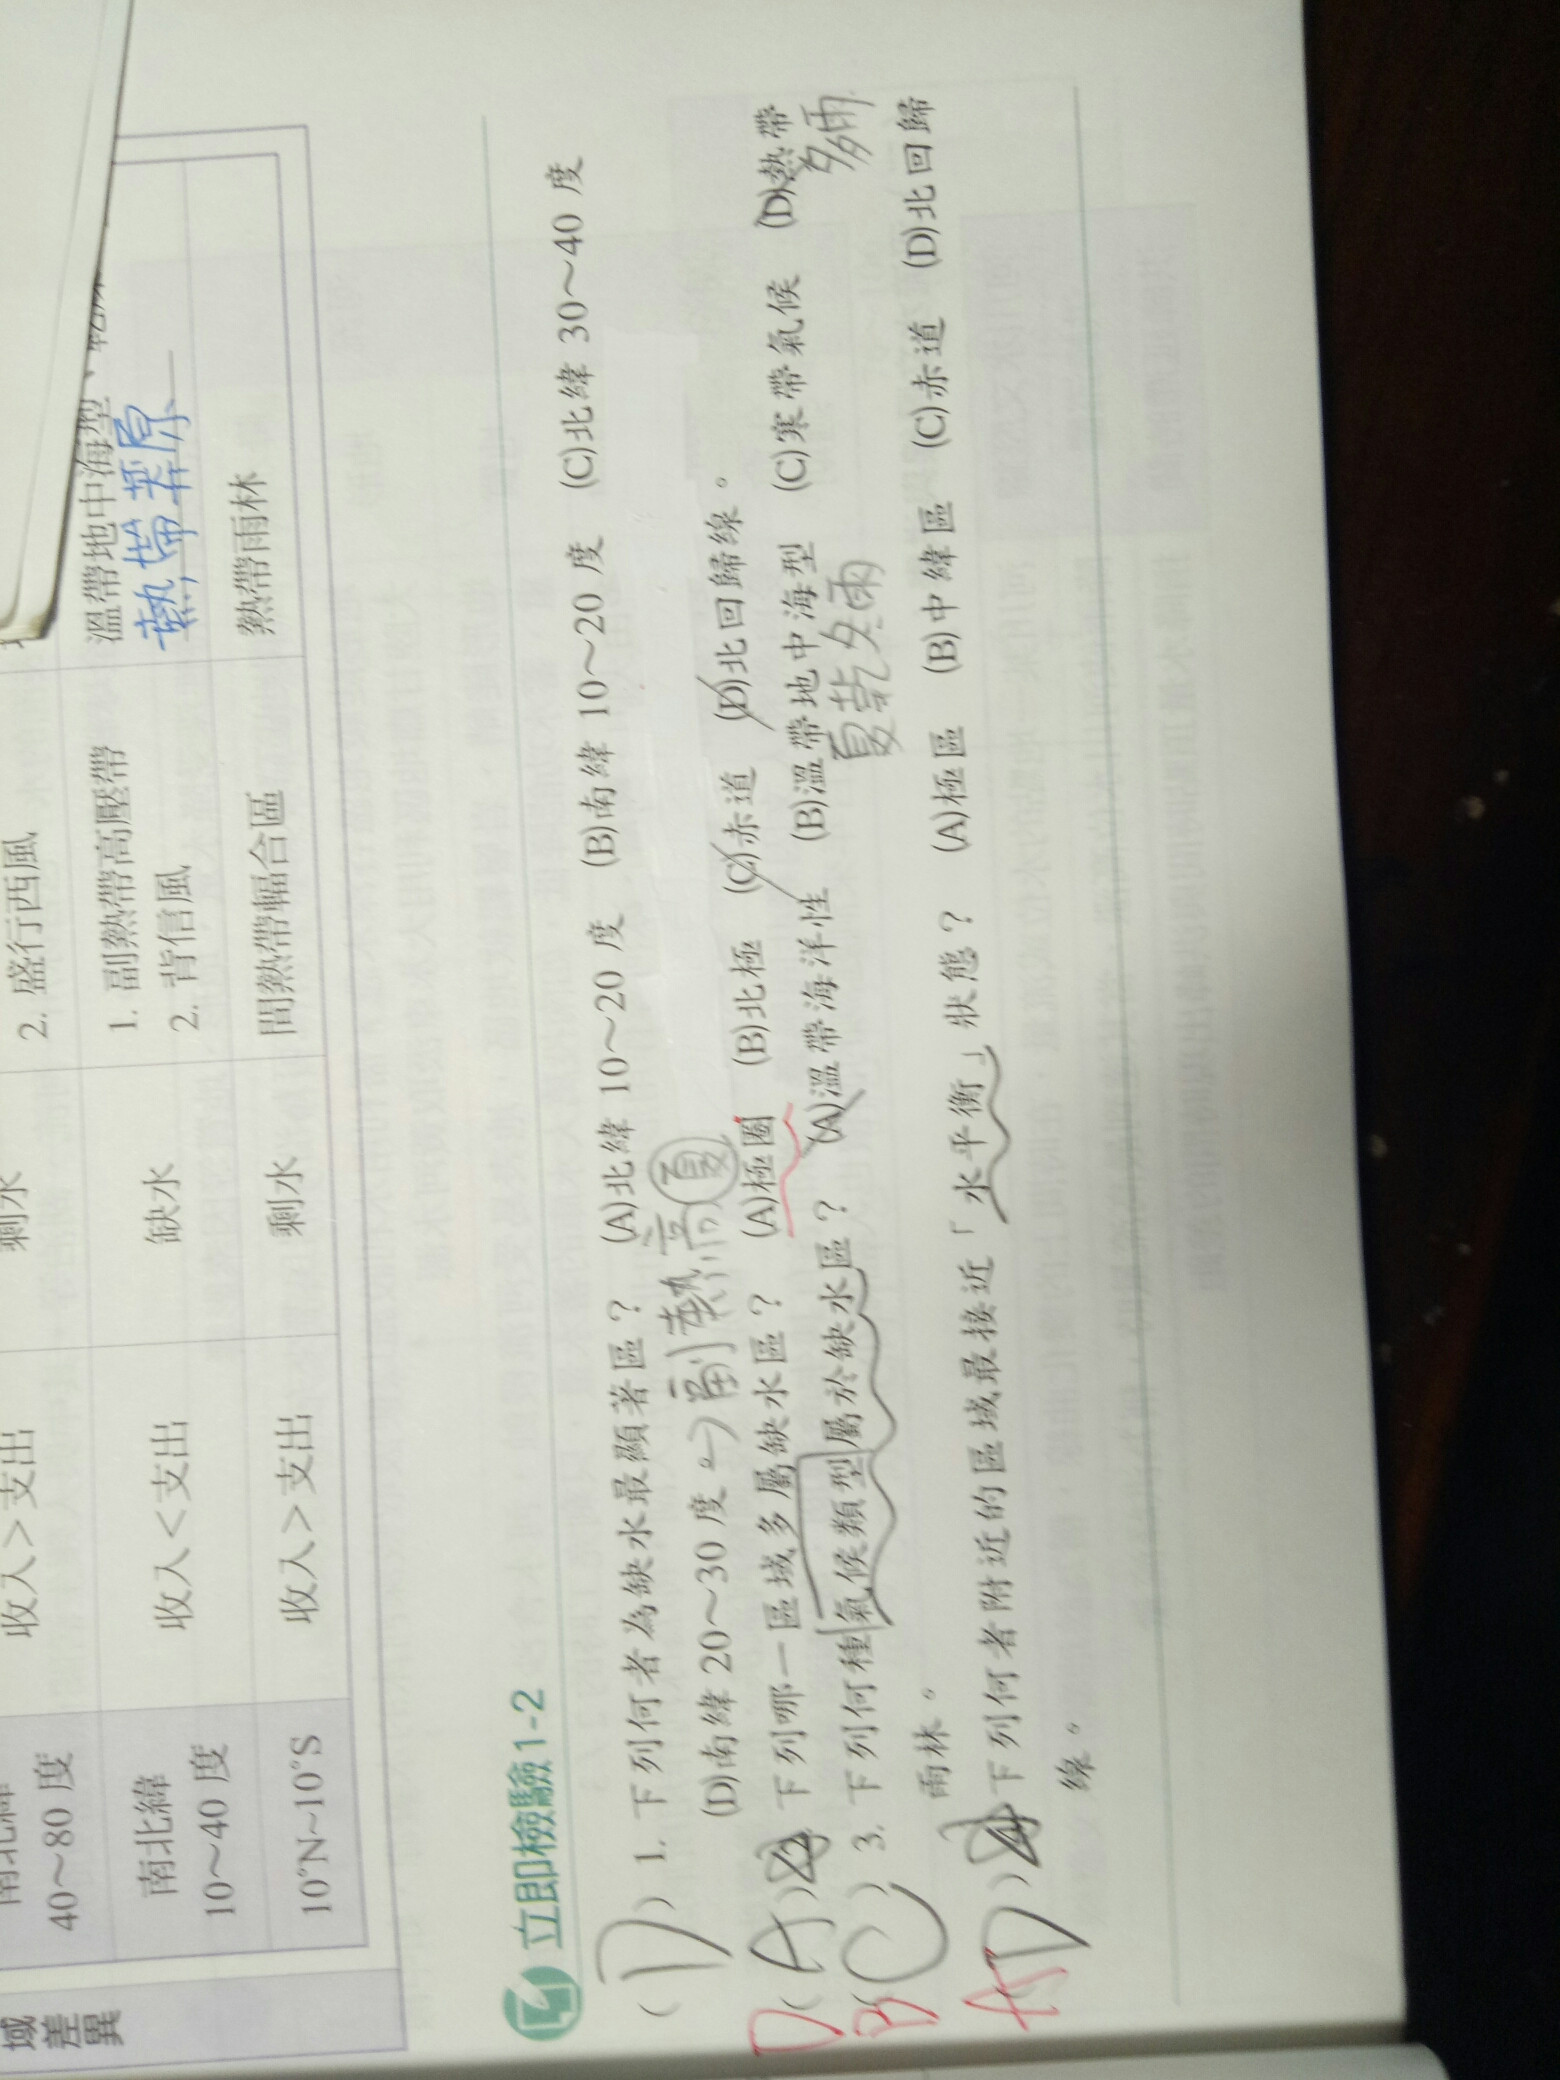 域差異
40～80 度
收入＞支出
剩水
2. 盛行西風
南北緯
10～40 度
收入＜支出
缺水
1. 副熱帶高壓帶
2. 背信風
溫帶地中海型、
熱帶莽原
10°N~10°S
收入＞支出
剩水
間熱帶輻合區
熱帶雨林
立即檢驗1-2
( D ) 1. 下列何者為缺水最顯著區？ (A)北緯 10～20 度 (B)南緯 10～20 度 (C)北緯 30～40 度
(D)南緯 20～30 度。 副熱帶 夏
D ( A ) 2. 下列哪一區域多屬缺水區？ (A)極圈 (B)北極 (C)赤道 (D)北回歸線。
B ( C ) 3. 下列何種氣候類型屬於缺水區？ (A)溫帶海洋性 (B)溫帶地中海型 (C)寒帶氣候 (D)熱帶
夏乾冬雨 多雨
雨林。
A ( D ) 4. 下列何者附近的區域最接近「水平衡」狀態？ (A)極區 (B)中緯區 (C)赤道 (D)北回歸
線。